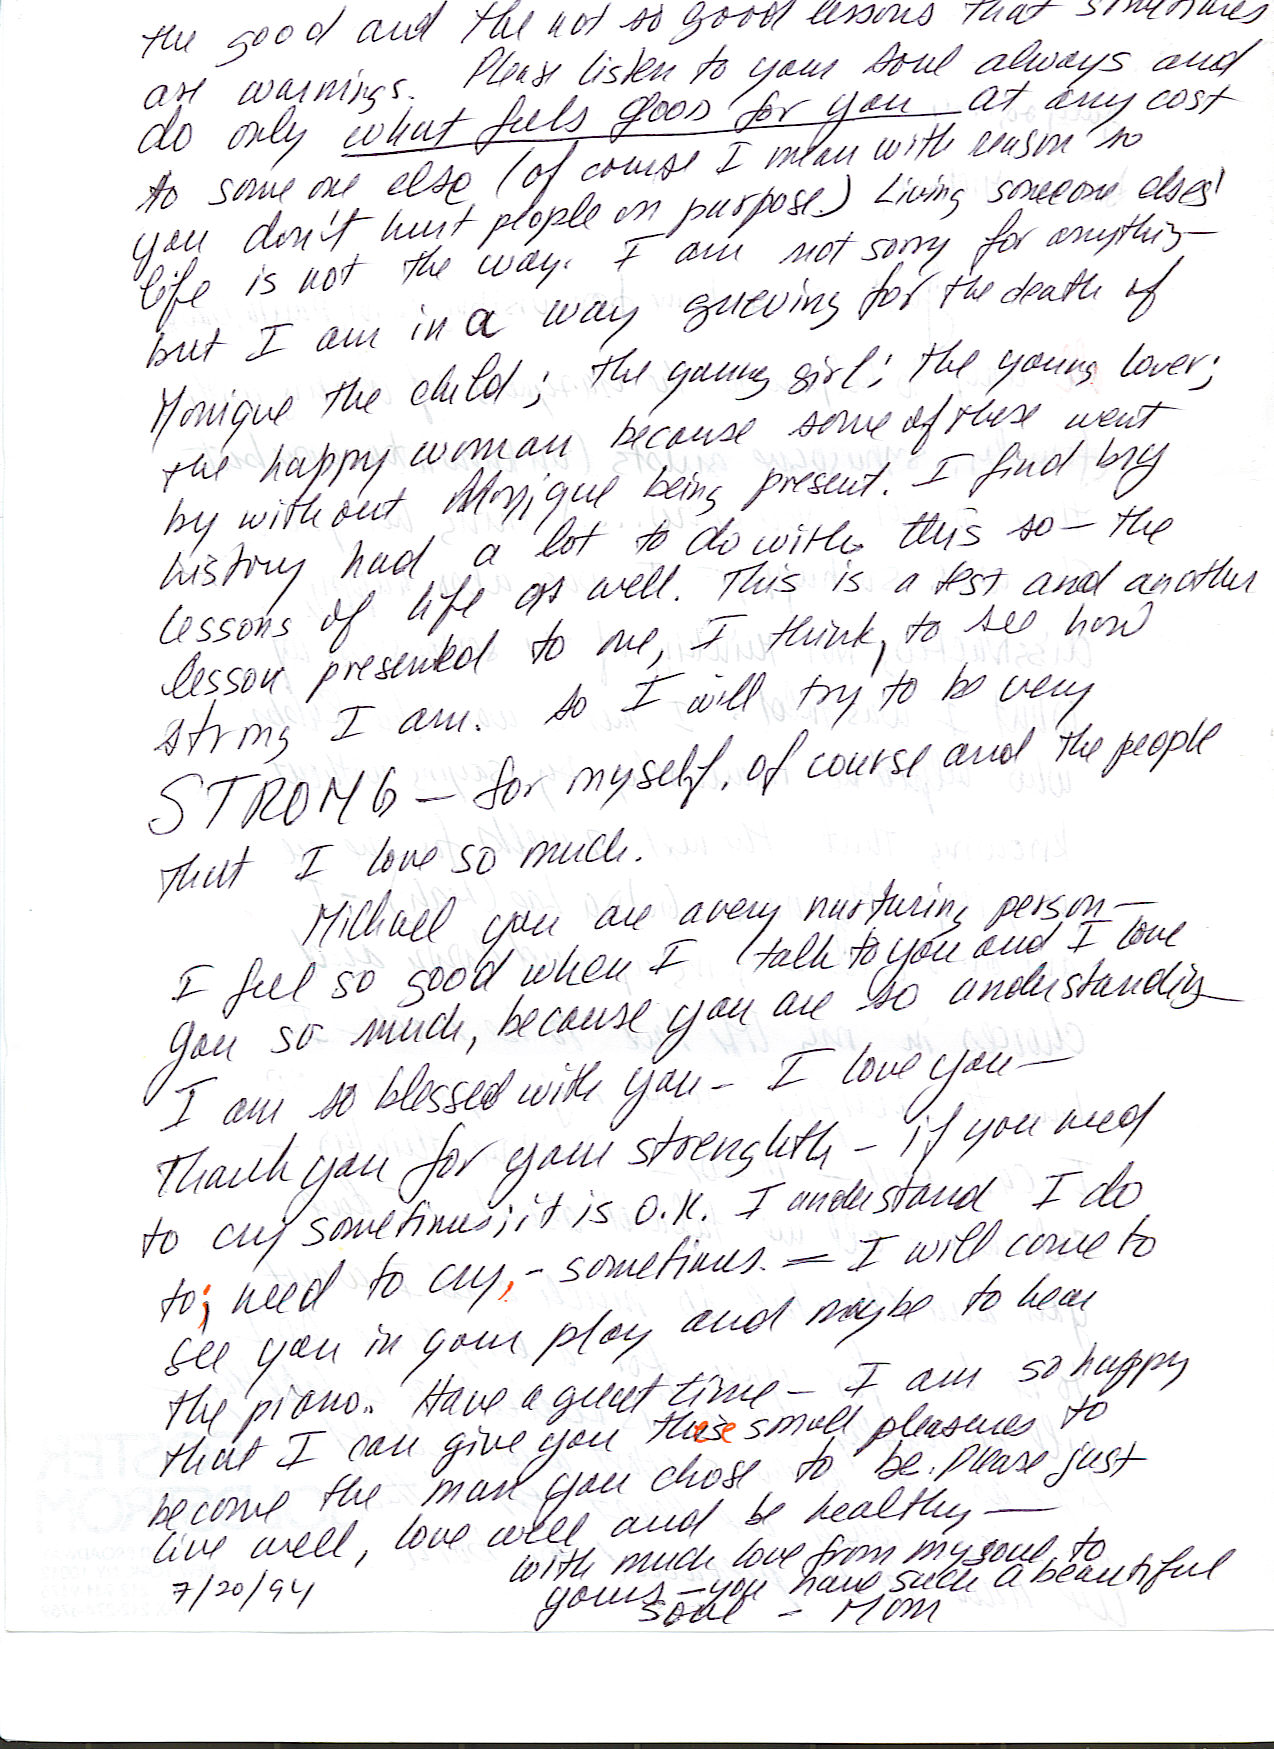 the good and the not so good lessons that sometimes
are warnings. Please listen to your soul always and
do only what feels good for you at any cost
to some one else (of course I mean with reason so
you don't hurt people on purpose.) Living someone elses'
life is not the way. I am not sorry for anything—
but I am in a way grieving for the death of
Monique the child; the young girl; the young lover;
the happy woman because some of these went
by without Monique being present. I find by
history had a lot to do with this so — the
lessons of life as well. This is a test and another
lesson presented to me, I think, to see how
strong I am. So I will try to be very
STRONG — for myself, of course and the people
that I love so much.
Michael you are a very nurturing person—
I feel so good when I talk to you and I love
you so much, because you are so understanding
I am so blessed with you - I love you—
Thank you for your strenghth - if you need
to cry sometimes; it is O.K. I understand I do
to; need to cry, - sometimes. = I will come to
see you in your play and maybe to hear
the piano.. Have a great time - I am so happy
that I can give you these small pleasures to
become the man you chose to be. Please just
live well, love well and be healthy—
with much love from my soul to
7/20/94
yours - you have such a beautiful
soul - Mom